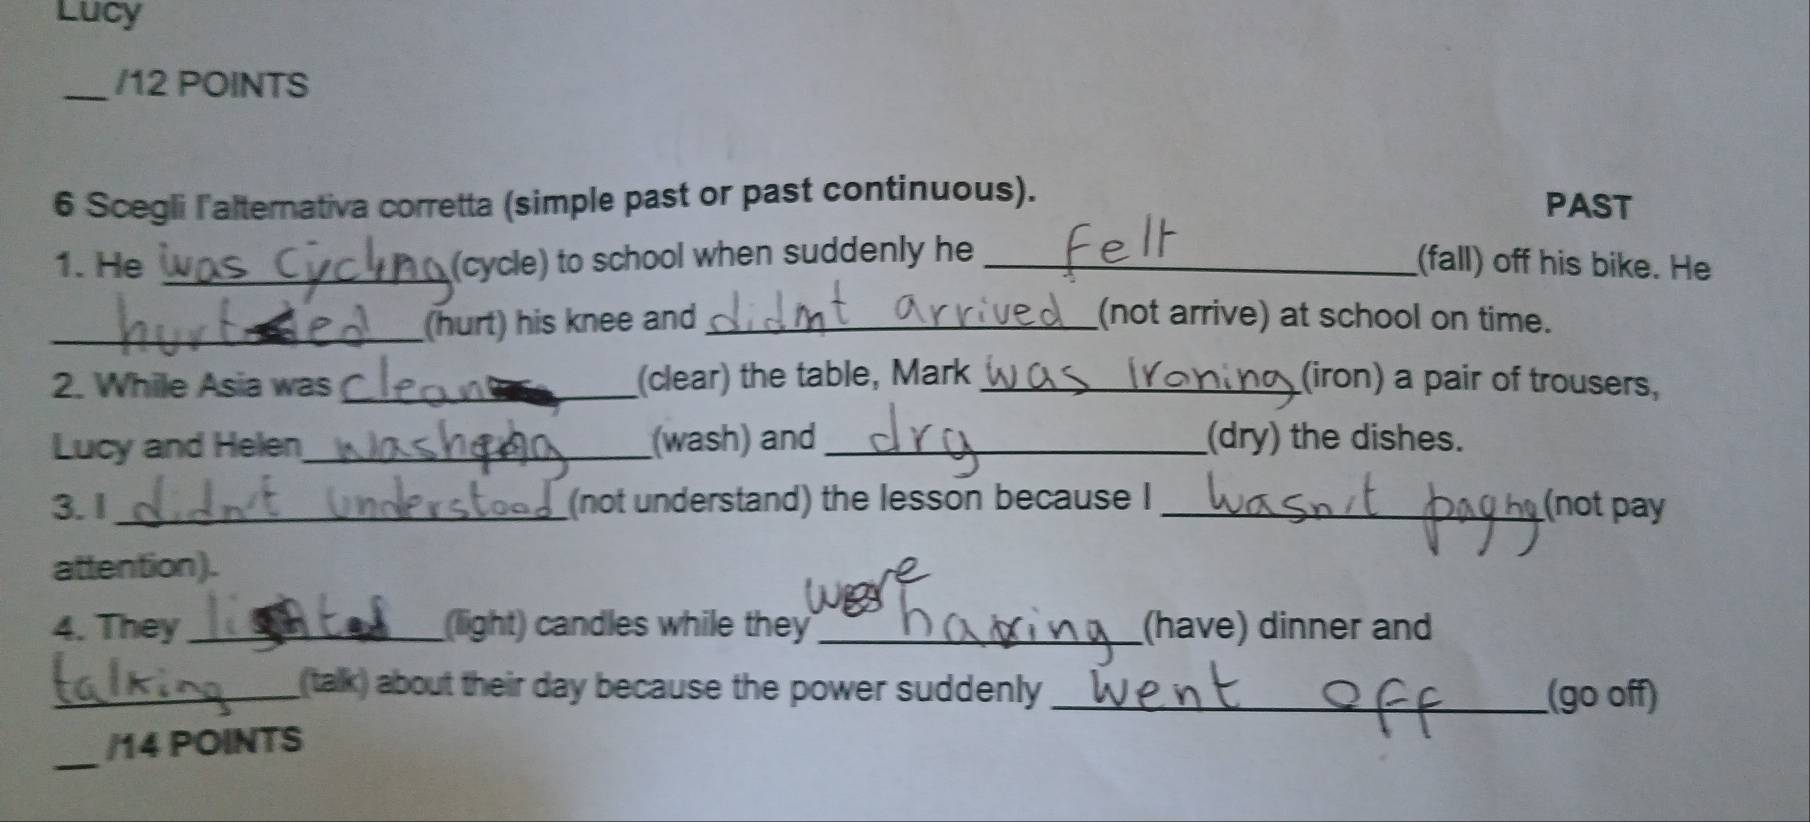 Lucy
__/12 POINTS
6 Scegli l'alternativa corretta (simple past or past continuous). PAST
1. He was cycling (cycle) to school when suddenly he felt (fall) off his bike. He
hurted (hurt) his knee and didnt arrived (not arrive) at school on time.
2. While Asia was clean (clear) the table, Mark was ironing (iron) a pair of trousers,
Lucy and Helen washing (wash) and dry (dry) the dishes.
3. I didn't understood (not understand) the lesson because I wasn't paying (not pay
attention).
4. They lighted (light) candles while they were having (have) dinner and
talking (talk) about their day because the power suddenly went off (go off)
__/14 POINTS